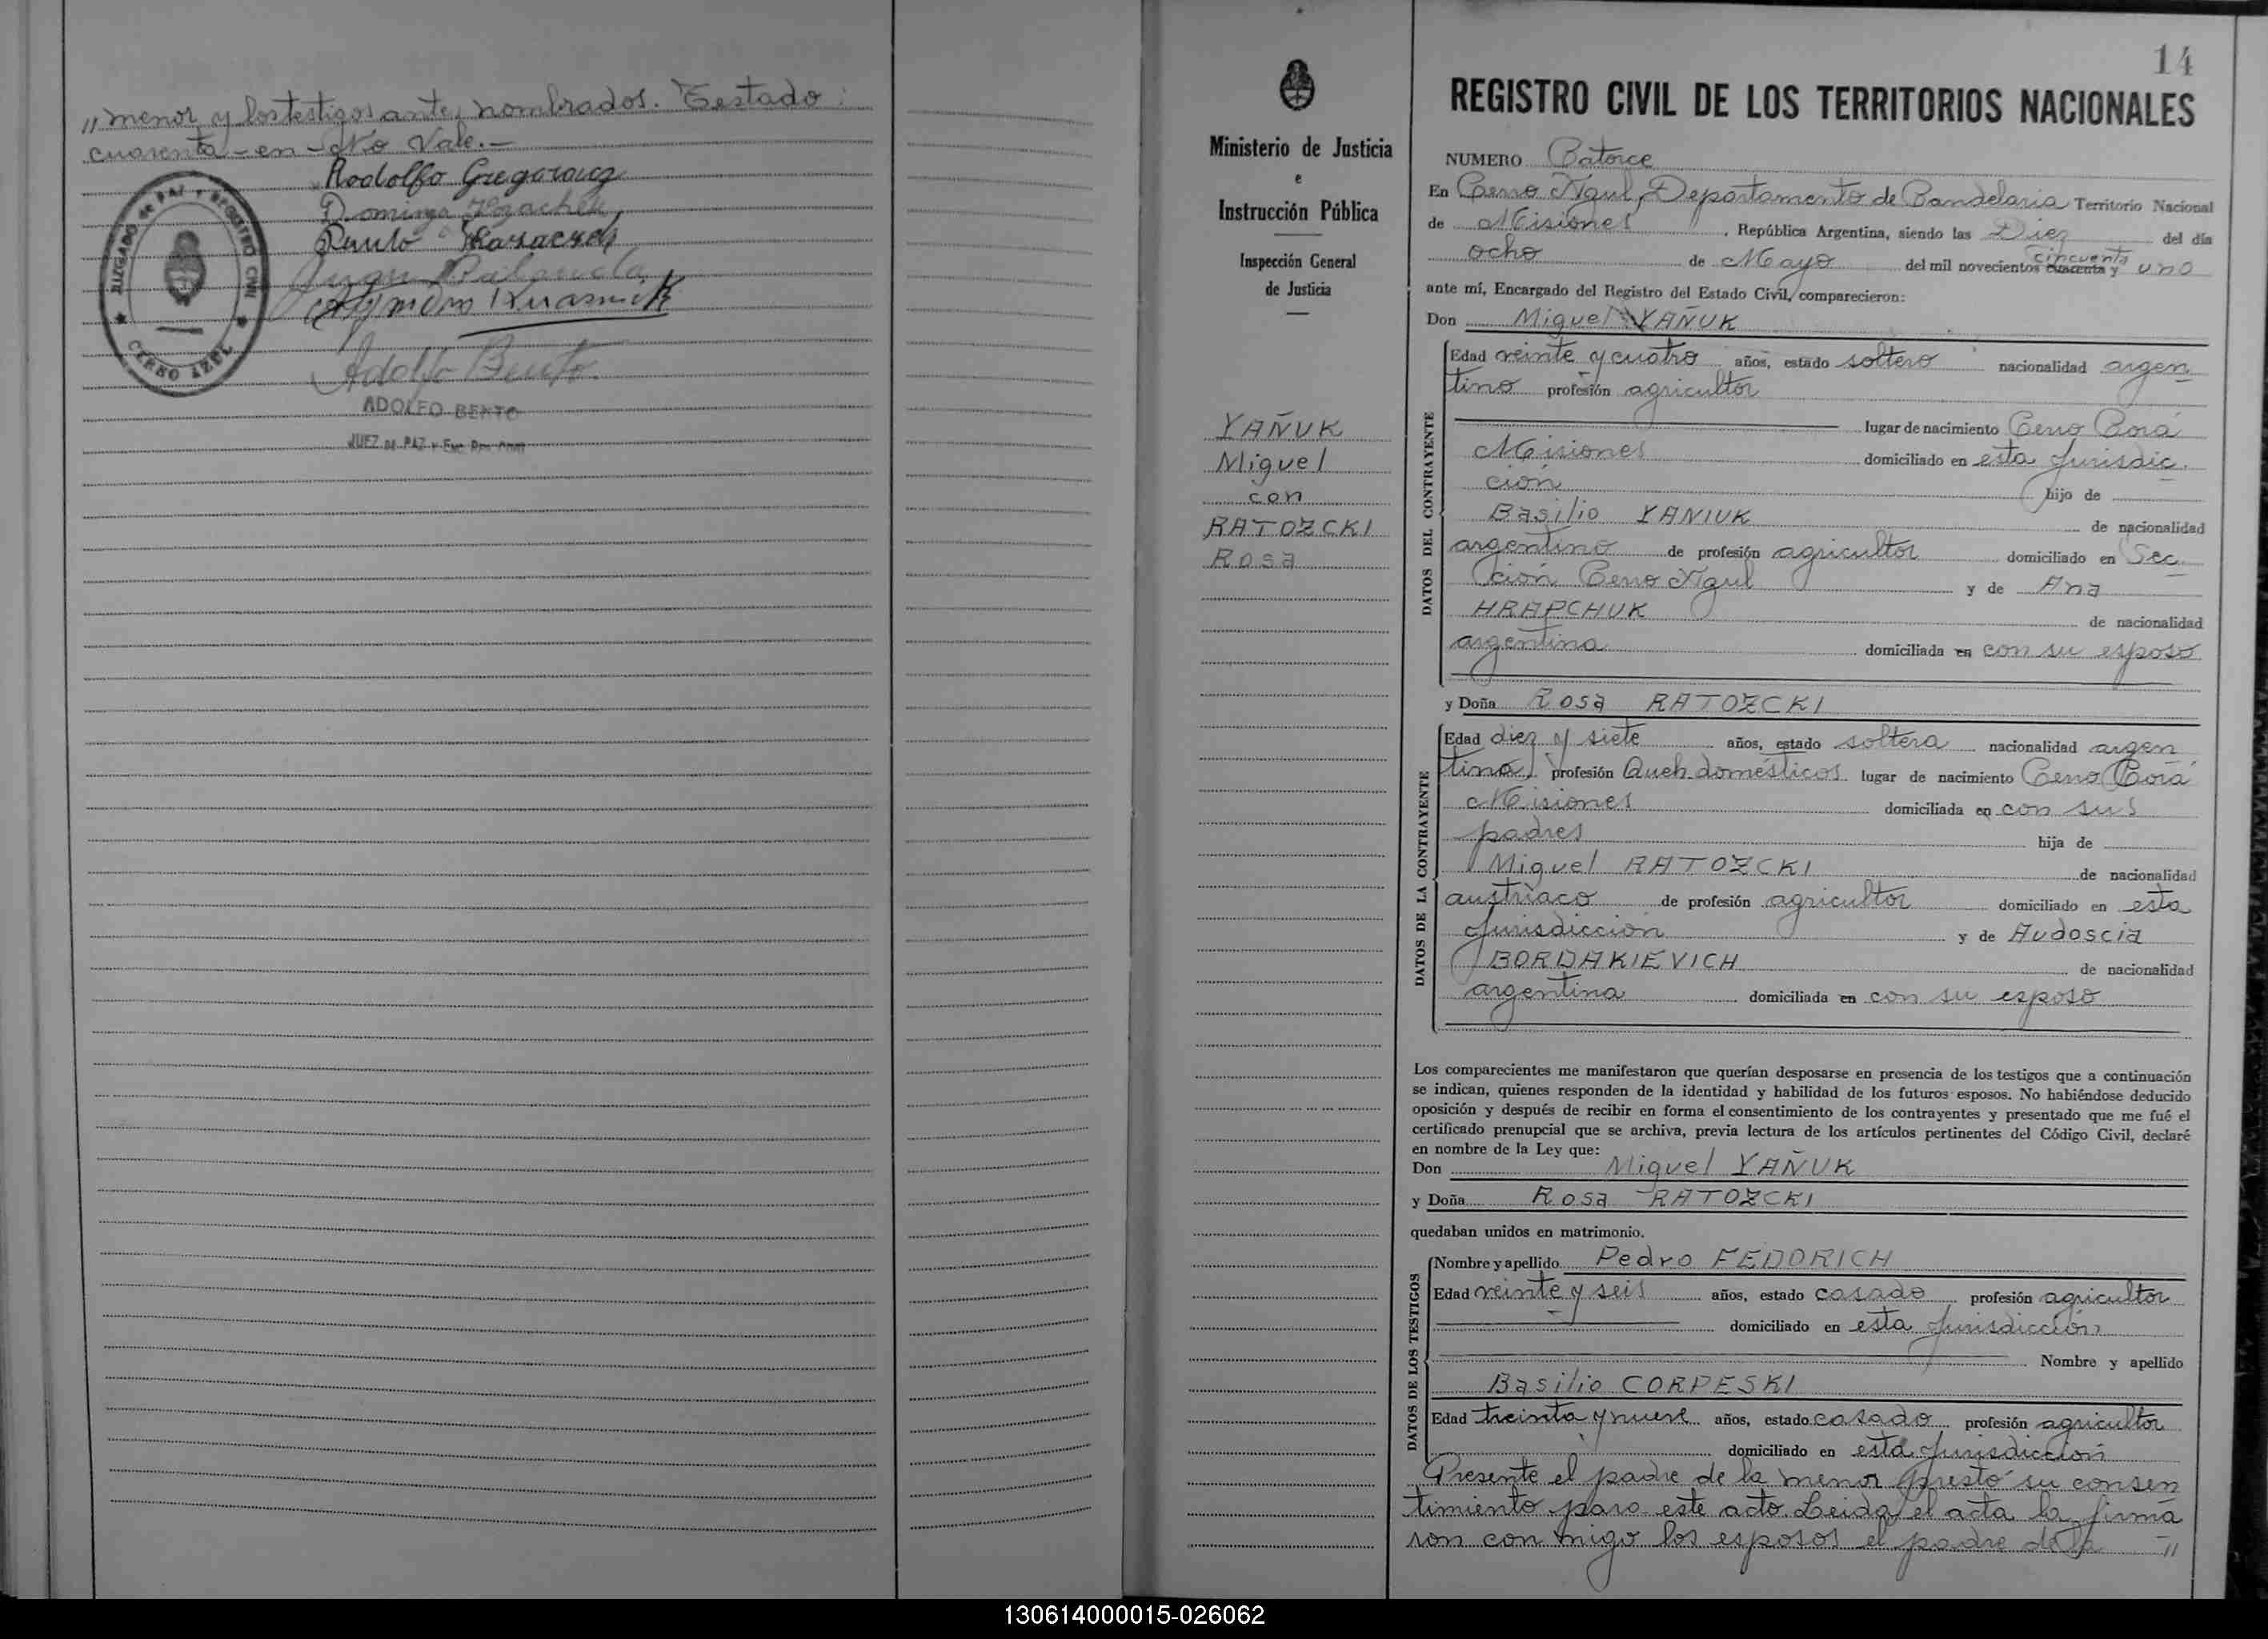 " menor y los testigos ante nombrados. Testado:
cuarenta - en - No Vale. -
Rodolfo Gregoraug
Dominga
Paulo
Juan
JUZGADO de PAZ Y REGISTRO CIVIL
CERRO AZUL
Adolfo Bento.
ADOLFO BENTO
JUEZ DE PAZ Y ENC. REG. CIVIL
14
Ministerio de Justicia
e
Instrucción Pública
Inspección General
de Justicia
YAÑUK
Miguel
con
RATOZCKI
Rosa
REGISTRO CIVIL DE LOS TERRITORIOS NACIONALES
NUMERO Catorce
En Cerro Azul, Departamento de Candelaria Territorio Nacional
de Misiones, República Argentina, siendo las Diez del día
ocho de Mayo del mil novecientos cuarenta y cincuenta uno
ante mí, Encargado del Registro del Estado Civil, comparecieron:
Don Miguel YAÑUK
DATOS DEL CONTRAYENTE
Edad veinte y cuatro años, estado soltero nacionalidad argen
tino profesión agricultor
lugar de nacimiento Cerro Corá
Misiones domiciliado en esta Jurisdic.
ción hijo de
Basilio YANIUK de nacionalidad
argentino de profesión agricultor domiciliado en Sec
ción Cerro Azul y de Ana
HRAPCHUK de nacionalidad
argentina domiciliada en con su esposo
y Doña Rosa RATOZCKI
DATOS DE LA CONTRAYENTE
Edad diez y siete años, estado soltera nacionalidad argen
tina, profesión Queh. domésticos lugar de nacimiento Cerro Corá
Misiones domiciliada en con sus
padres hija de
Miguel RATOZCKI de nacionalidad
austriaco de profesión agricultor domiciliado en esta
Jurisdicción y de Audoscia
BORDAKIEVICH de nacionalidad
argentina domiciliada en con su esposo
Los comparecientes me manifestaron que querían desposarse en presencia de los testigos que a continuación
se indican, quienes responden de la identidad y habilidad de los futuros esposos. No habiéndose deducido
oposición y después de recibir en forma el consentimiento de los contrayentes y presentado que me fué el
certificado prenupcial que se archiva, previa lectura de los artículos pertinentes del Código Civil, declaré
en nombre de la Ley que:
Don Miguel YAÑUK
y Doña Rosa RATOZCKI
quedaban unidos en matrimonio.
DATOS DE LOS TESTIGOS
Nombre y apellido Pedro FEDORICH
Edad veinte y seis años, estado casado profesión agricultor
domiciliado en esta Jurisdicción
Nombre y apellido
Basilio CORPESKI
Edad treinta y nueve años, estado casado profesión agricultor
domiciliado en esta Jurisdicción
Presente el padre de la menor prestó su consen
timiento para este acto. Leida el acta la firma
ron con migo los esposos el padre de la "
130614000015-026062